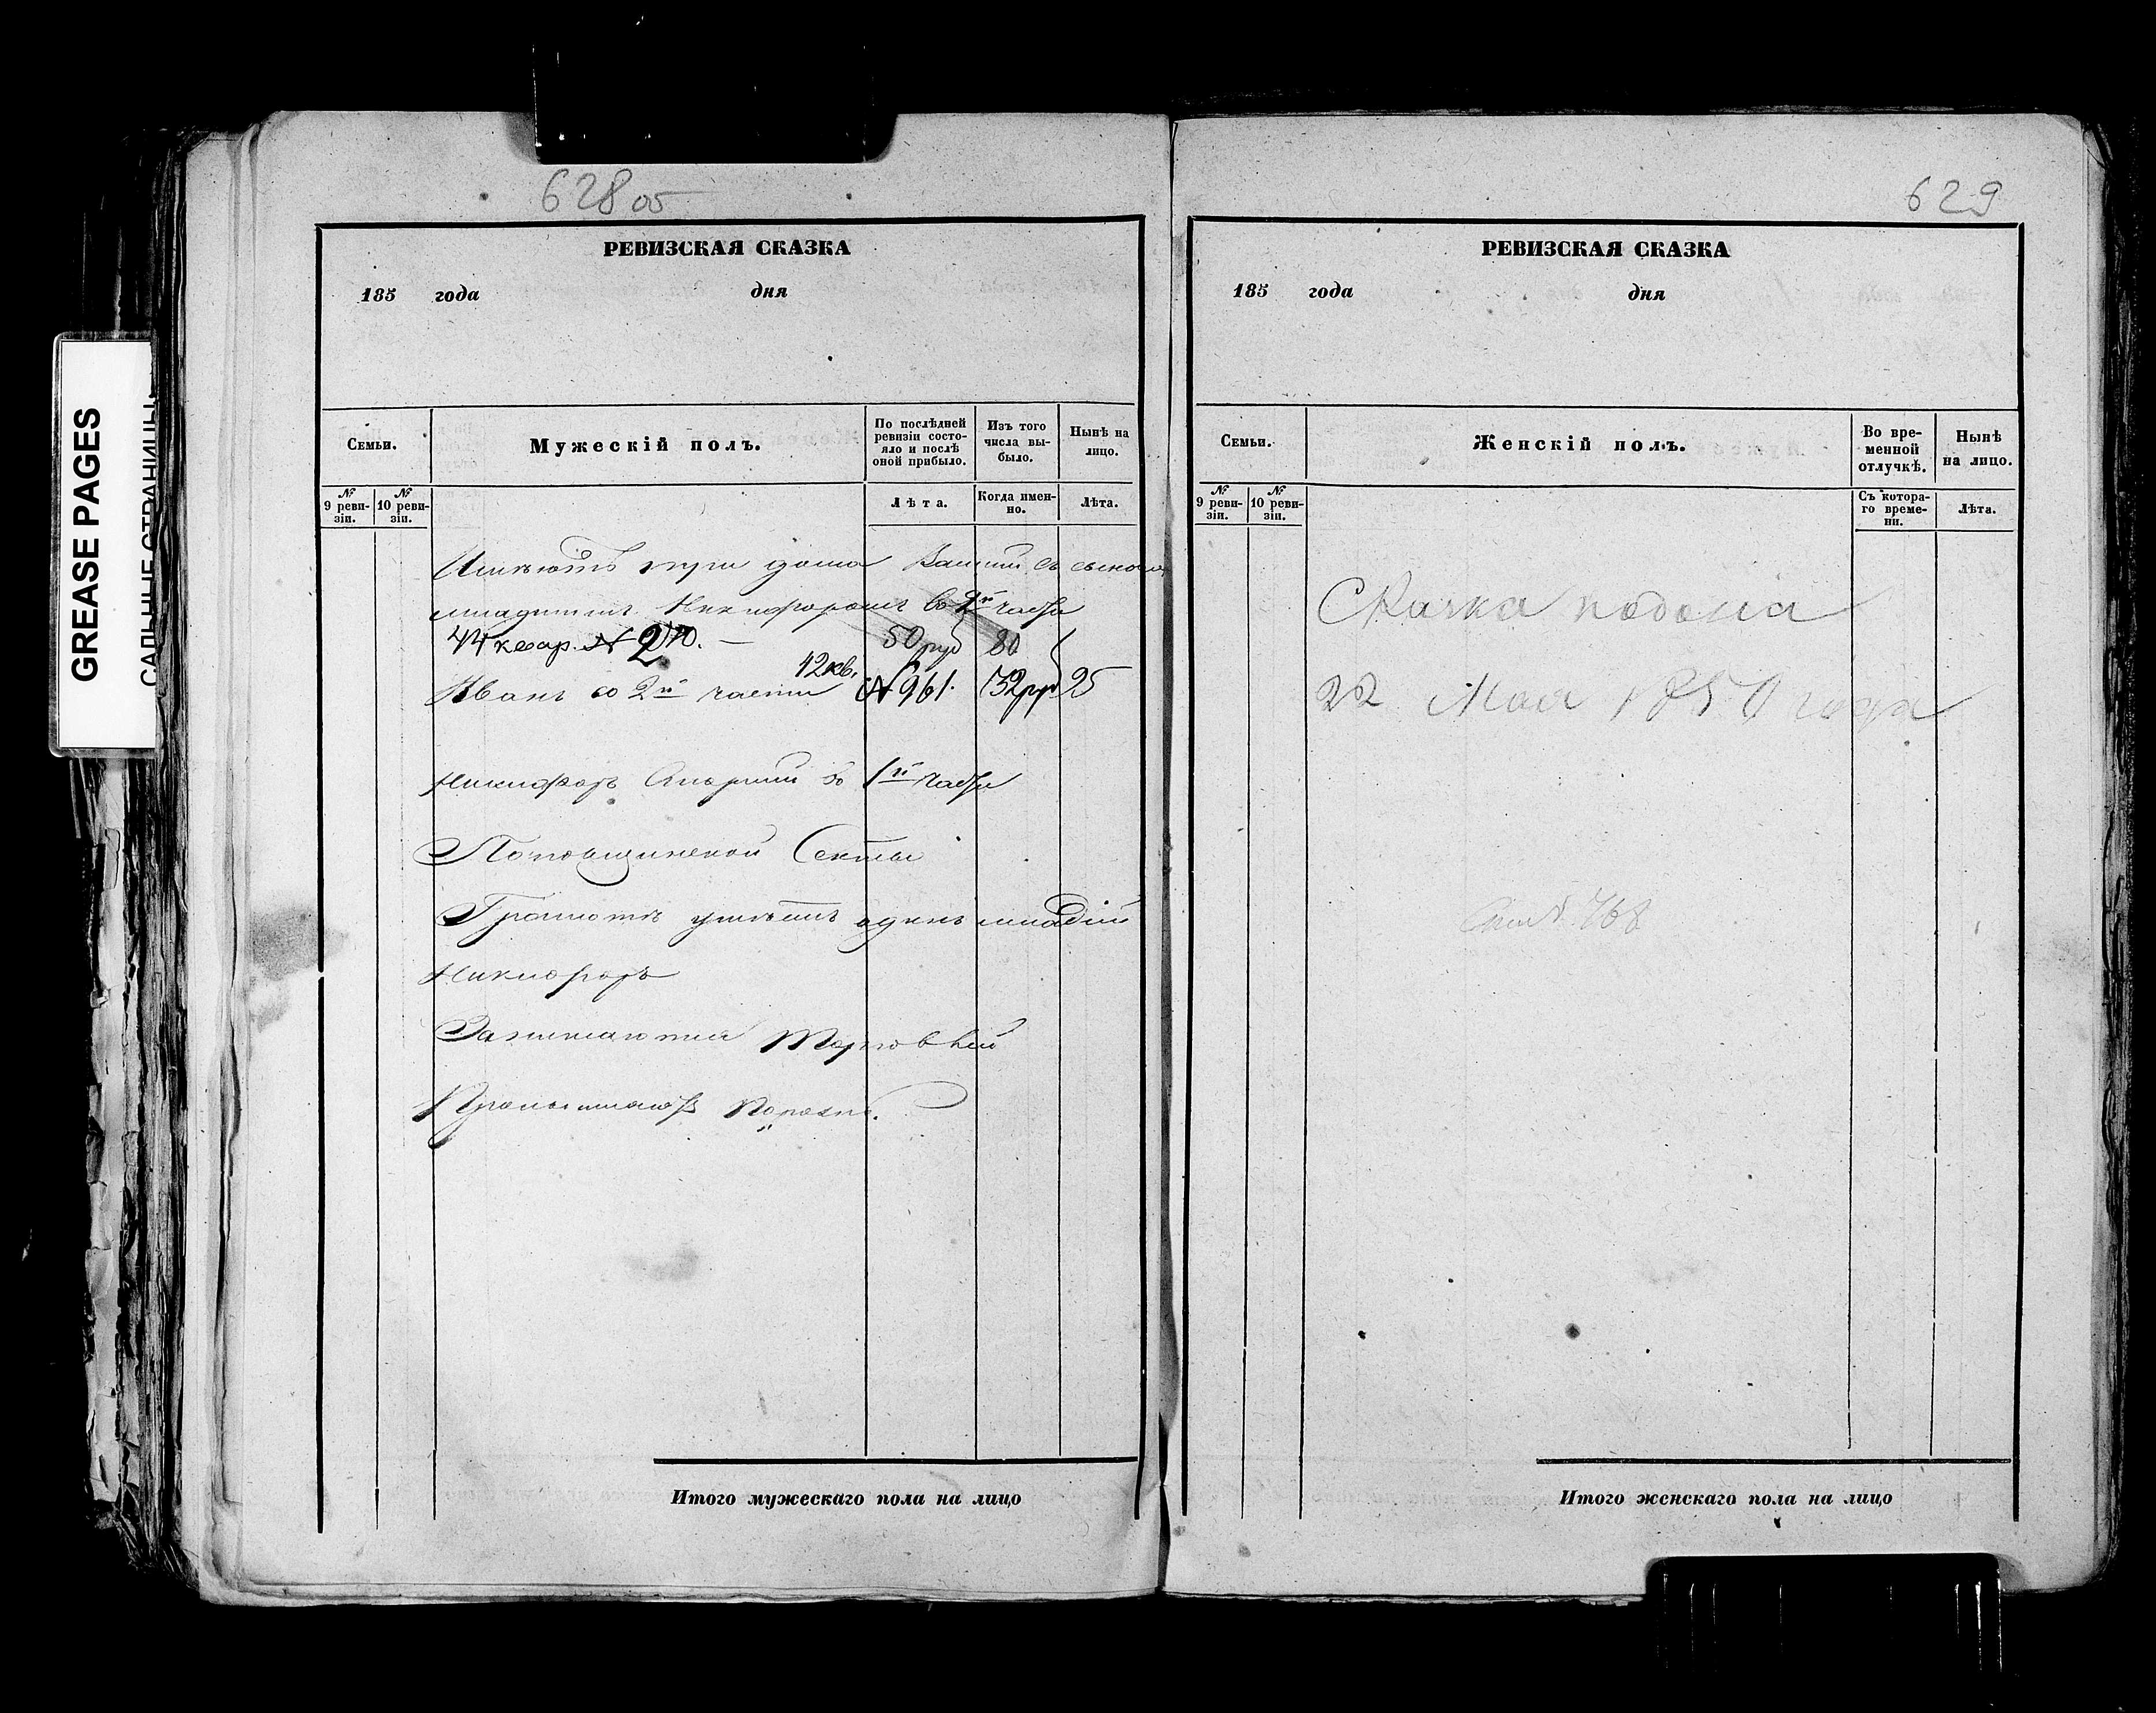 628 об
РЕВИЗСКАЯ СКАЗКА
185 года дня
Семьи.
Мужескій полъ.
По послѣдней ревизіи состояло и послѣ оной прибыло.
Изъ того числа выбыло.
Нынѣ на лицо.
№ 9 ревизіи.
№ 10 ревизіи.
Лѣта.
Когда именно.
Лѣта.
Имѣютъ три дома съ сыномъ
младшимъ Никифоромъ во 2й части
44 квар. № 270. — 50 руб 80
12 кв.
Иванъ во 2й части № 961. 132 руб 25
Никифоръ въ 1й части
Поповщинской Секты
Грамотѣ умѣетъ одинъ младшій
Никифоръ
Занимаются Торговлей
Промышляютъ
Итого мужескаго пола на лицо
629
РЕВИЗСКАЯ СКАЗКА
185 года дня
Семьи.
Женскій полъ.
Во временной отлучкѣ.
Нынѣ на лицо.
№ 9 ревизіи.
№ 10 ревизіи.
Съ котораго времени.
Лѣта.
Сказка подана
22 Мая 1850 года
768
Итого женскаго пола на лицо
GREASE PAGES
САЛЬНЫЕ СТРАНИЦЫ